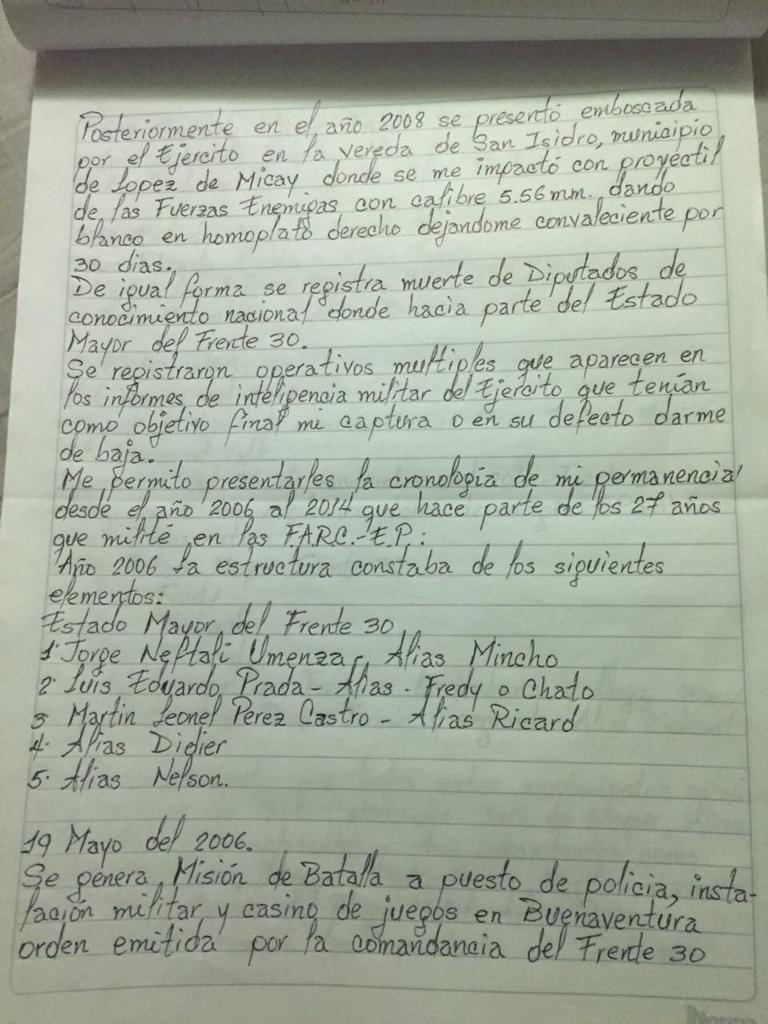 Posteriormente en el año 2008 se presentó emboscada
por el Ejercito en la vereda de San Isidro, municipio
de Lopez de Micay donde se me impactó con proyectil
de las Fuerzas Enemigas con calibre 5.56 mm. dando
blanco en homoplato derecho dejandome convaleciente por
30 dias.
De igual forma se registra muerte de Diputados de
conocimiento nacional donde hacia parte del Estado
Mayor del Frente 30.
Se registraron operativos multiples que aparecen en
los informes de inteligencia militar del Ejercito que tenían
como objetivo final mi captura o en su defecto darme
de baja.
Me permito presentarles la cronología de mi permanencia
desde el año 2006 al 2014 que hace parte de los 27 años
que milité en las F.A.R.C.-E.P.:
Año 2006 la estructura constaba de los siguientes
elementos:
Estado Mayor del Frente 30
1. Jorge Neftalí Umenza, Alias Mincho
2. Luis Eduardo Prada - Alias - Fredy o Chato
3 Martin Leonel Perez Castro - Alias Ricard
4. Alias Didier
5. Alias Nelson.
19 Mayo del 2006.
Se genera Misión de Batalla a puesto de policia, insta-
lación militar y casino de juegos en Buenaventura
orden emitida por la comandancia del Frente 30